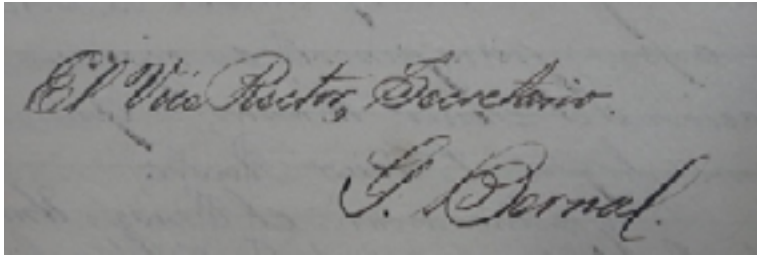 El Vice Rector, Secretario.
G. Bernal.